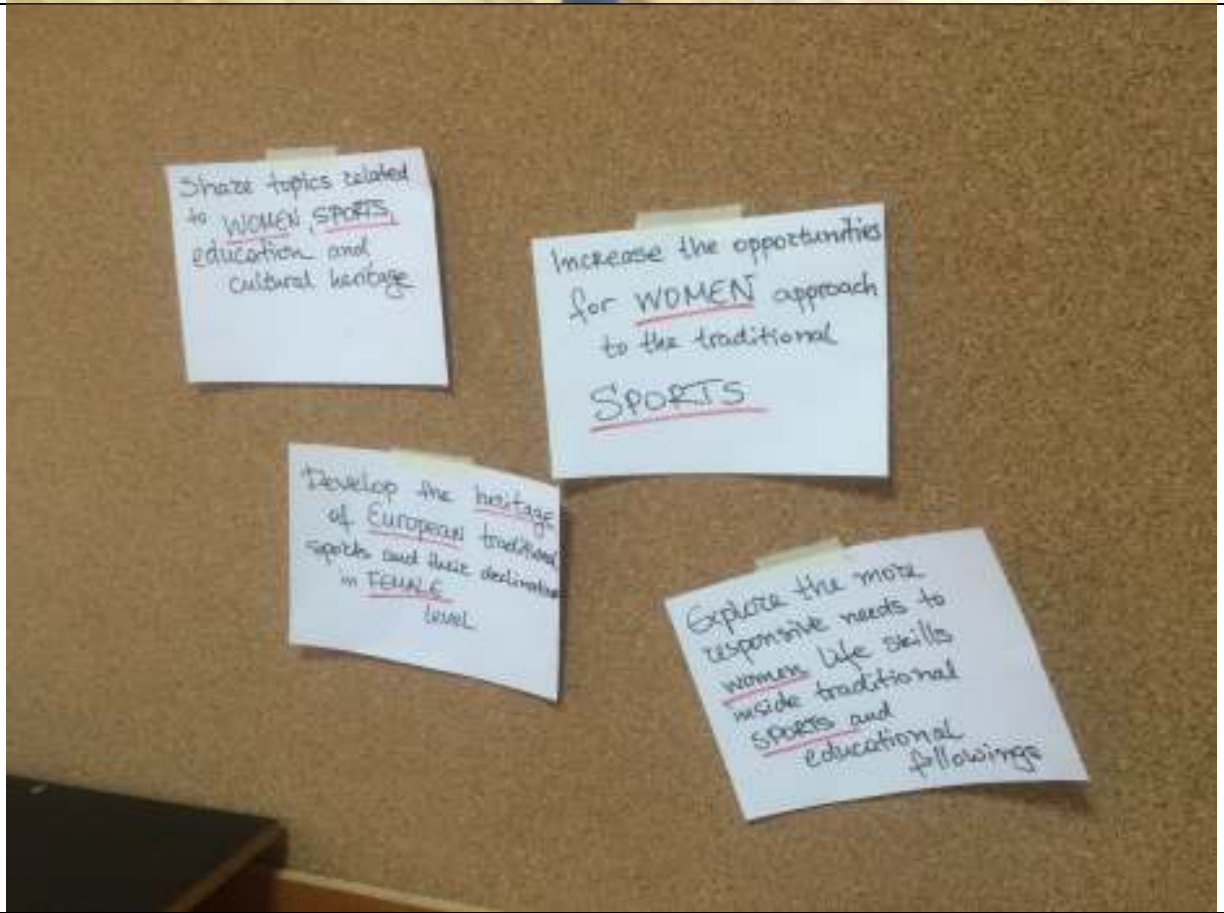 Share topics related
to WOMEN, SPORTS,
education and
cultural heritage
Increase the opportunities
for WOMEN approach
to the traditional
SPORTS
Develop the heritage
of European traditional
sports and their declination
in FEMALE
level
Explore the more
responsive needs to
women life skills
inside traditional
SPORTS and
educational
followings